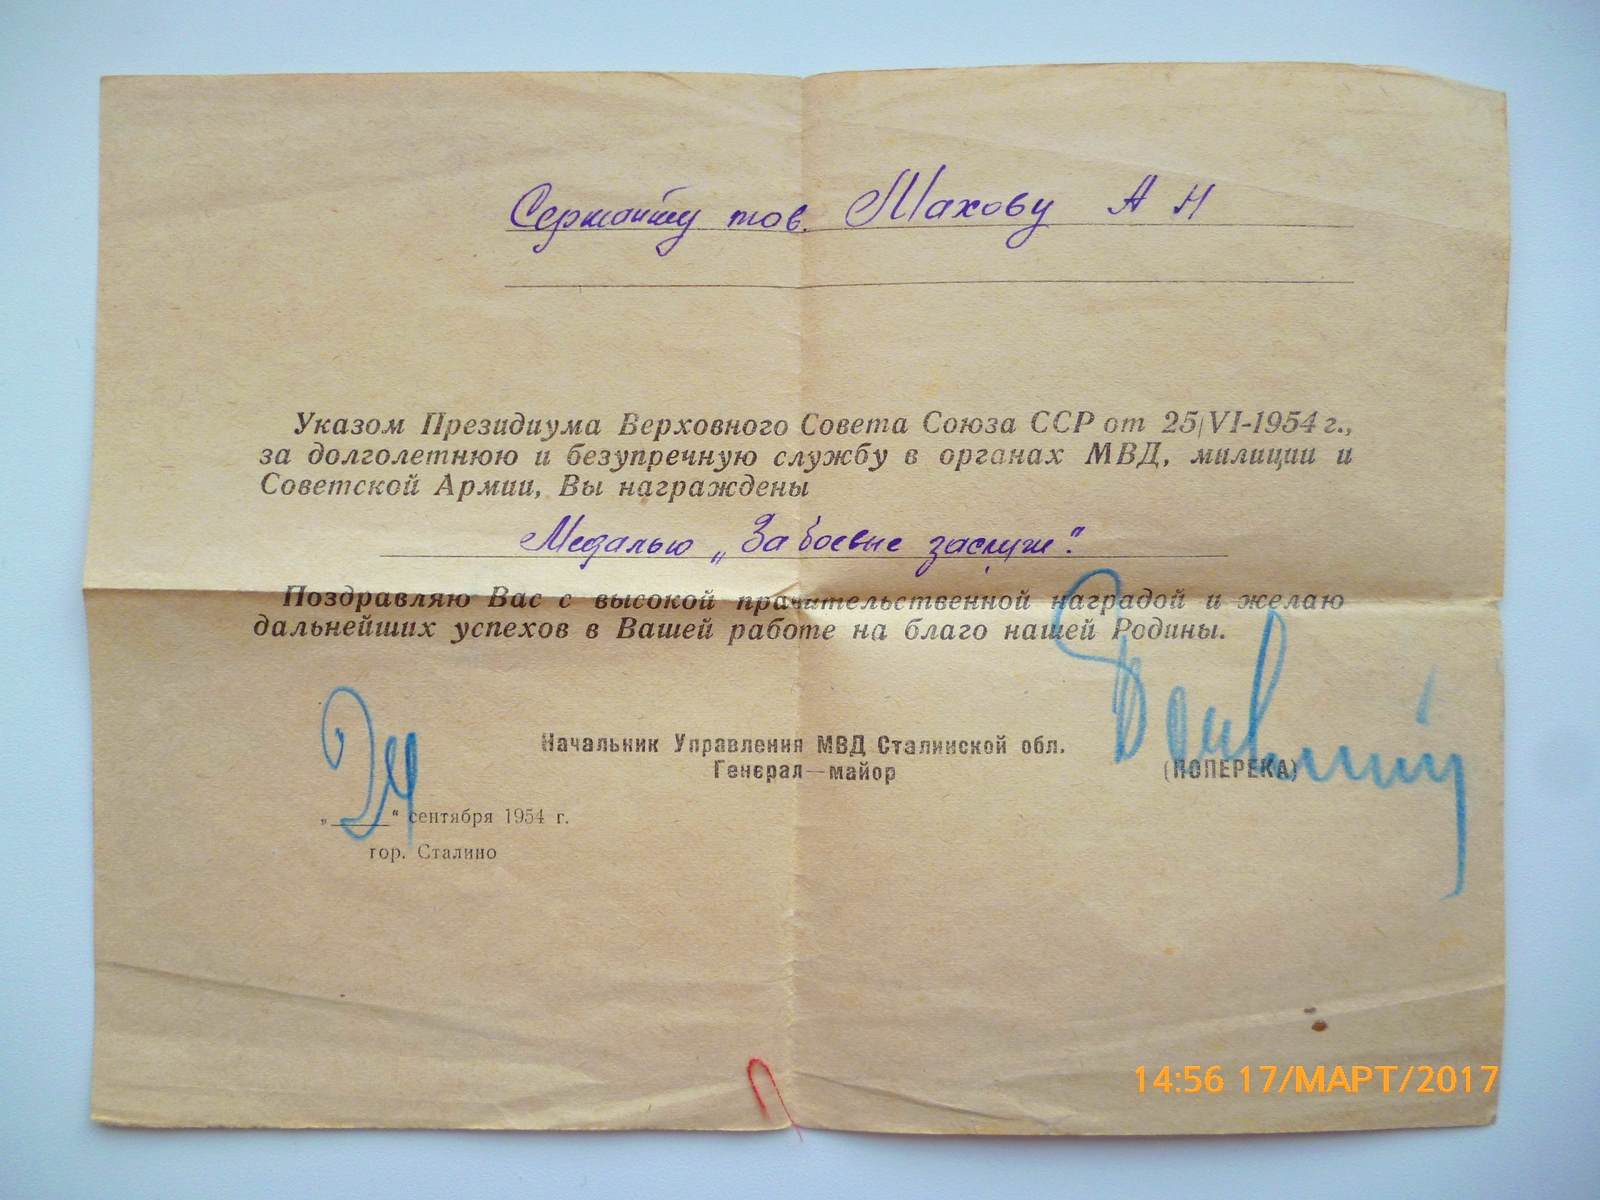 Сержанту тов. Махову А Н
Указом Президиума Верховного Совета Союза ССР от 25/VI-1954 г.,
за долголетнюю и безупречную службу в органах МВД, милиции и
Советской Армии, Вы награждены
Медалью „За боевые заслуги".
Поздравляю Вас с высокой правительственной наградой и желаю
дальнейших успехов в Вашей работе на благо нашей Родины.
Начальник Управления МВД Сталинской обл.
Генерал—майор (ПОПЕРЕКА)
„ " сентября 1954 г.
гор. Сталино
14:56 17/МАРТ/2017